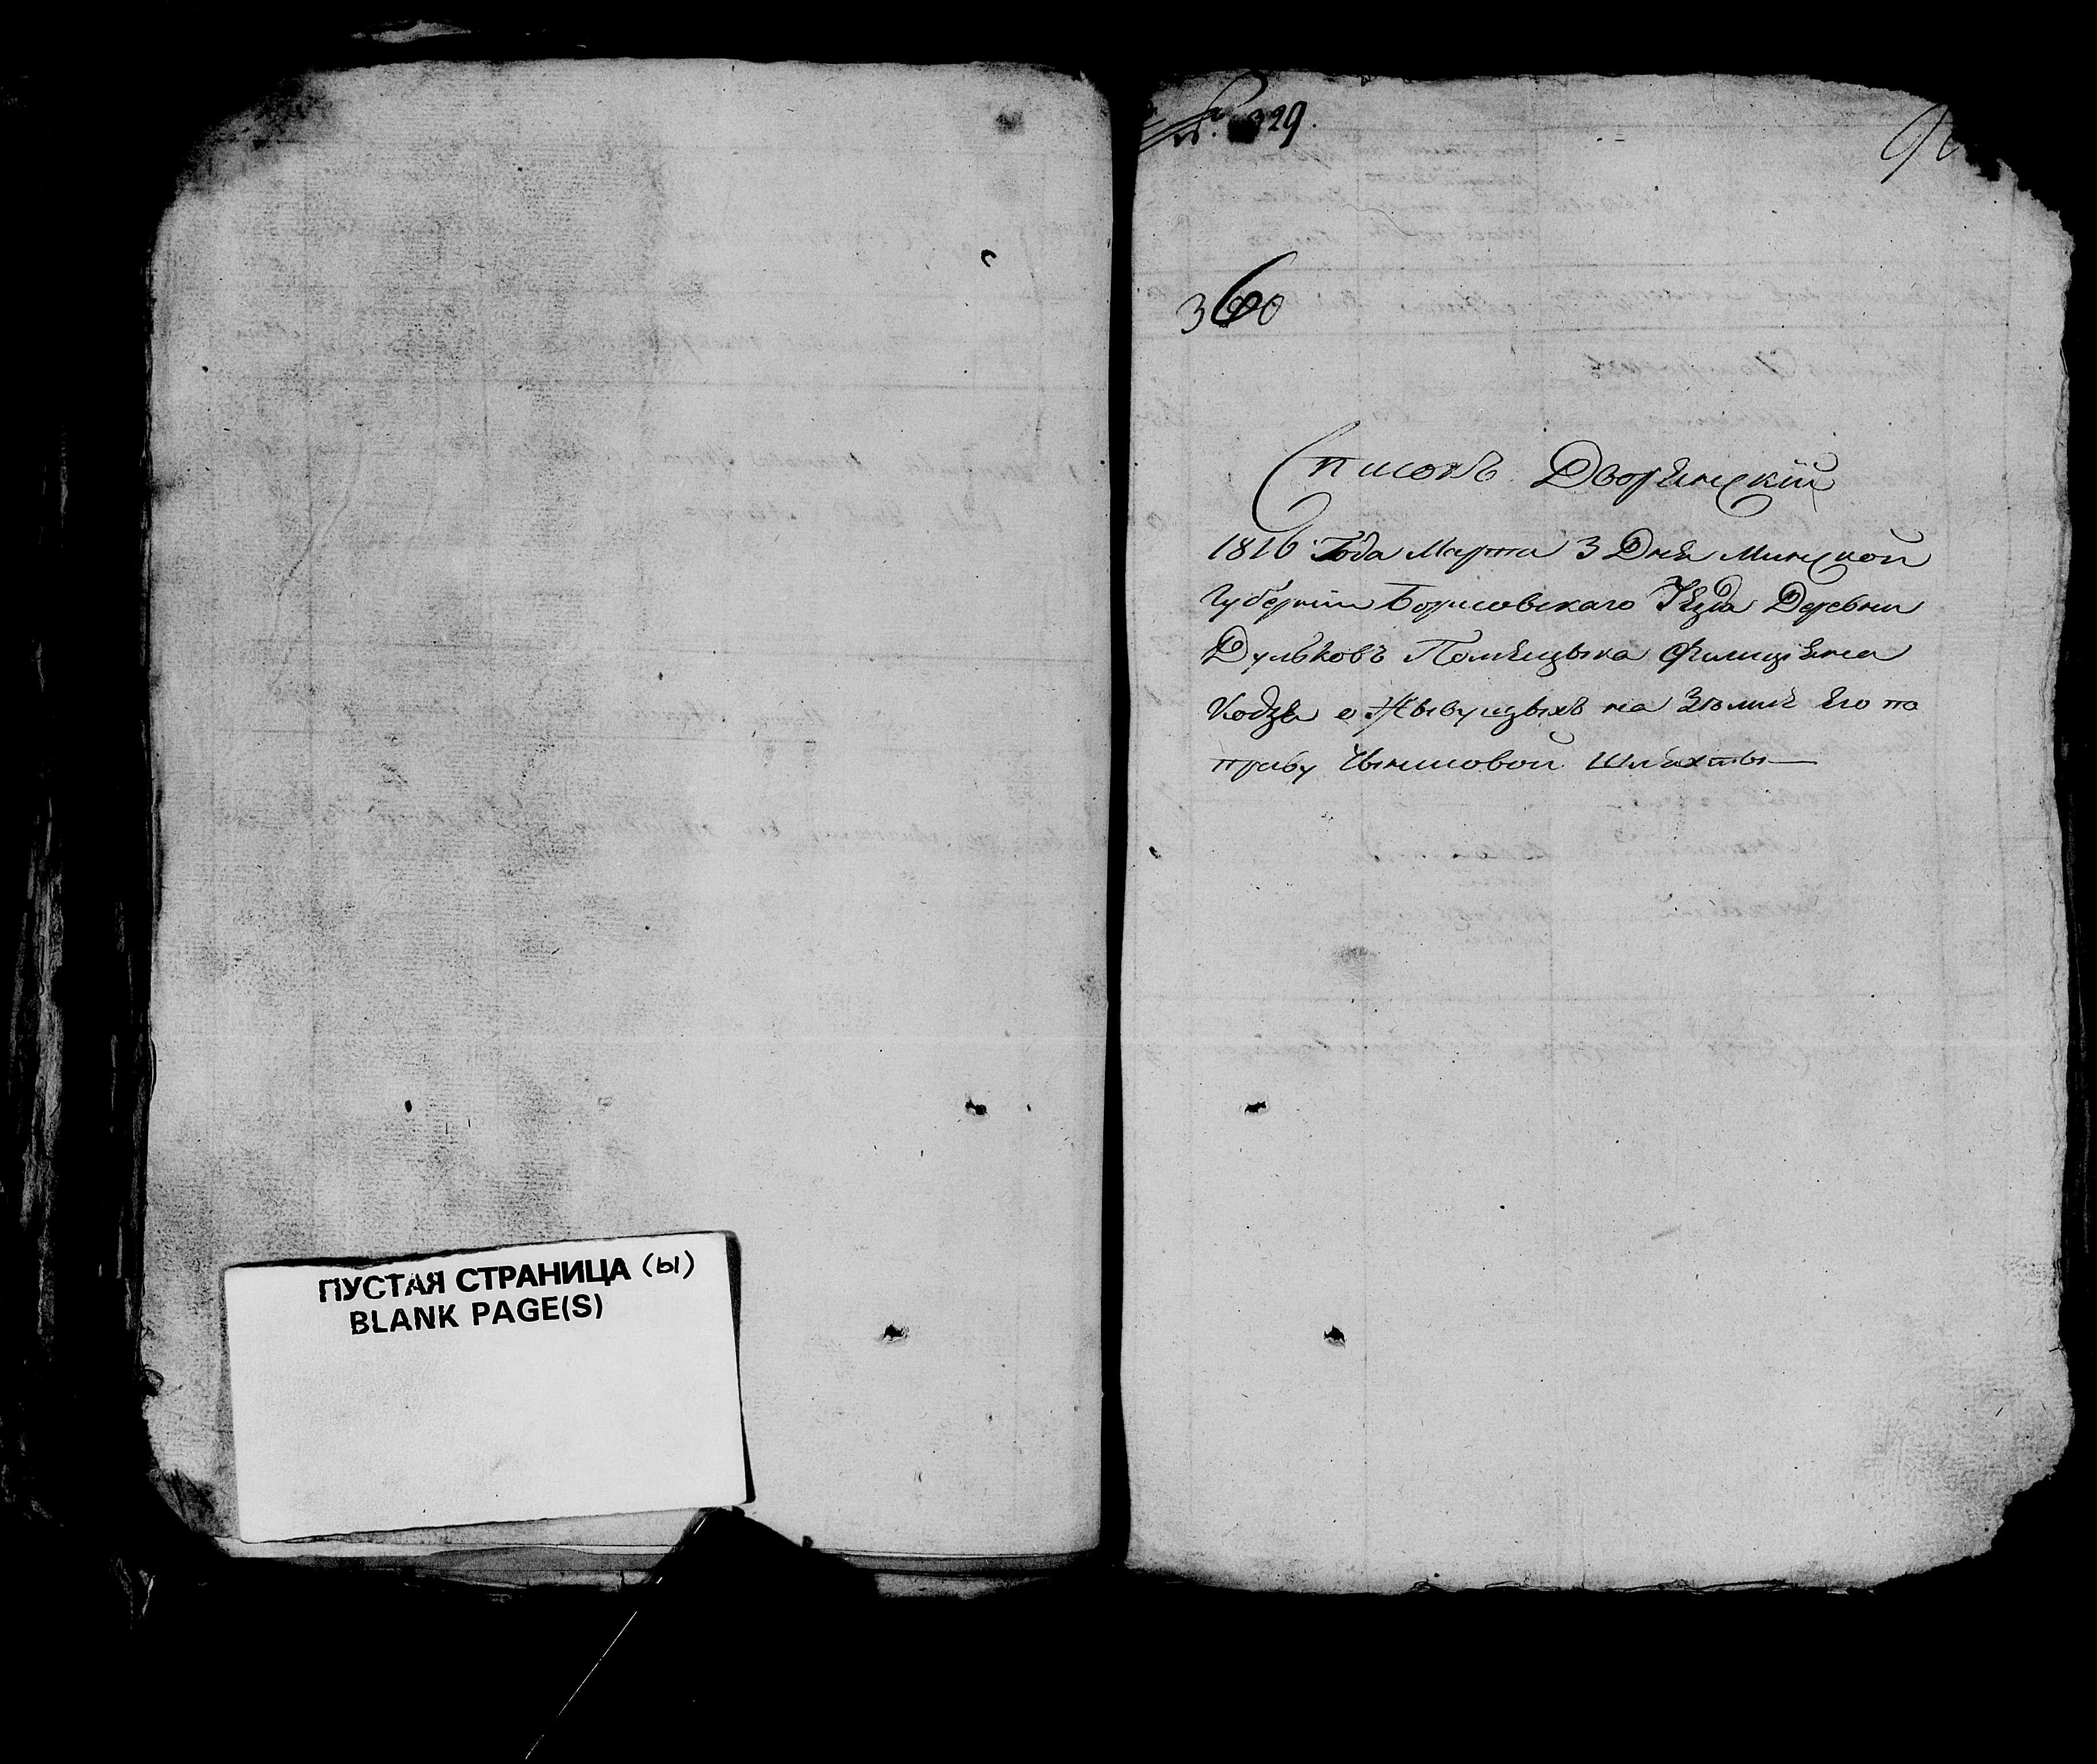 ПУСТАЯ СТРАНИЦА (ы)
BLANK PAGE(S)
329.
360
Списокъ Дворянскій
1816 Года Марта 3 Дня Минской
Губерніи Борисовскаго Уѣзда Деревни
Дульковъ Помѣщыка Фелиціяна
Кодзя о Жывущыхъ на Зѣмлѣ Его по
праву Чыншовой Шляхты